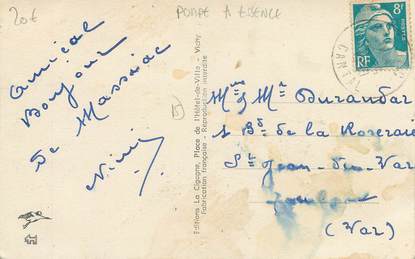 20€
POMPE A ESSENCE
Amical
Bonjour
de Massiac
8F
POSTES
RF
CANTAL
Editions La Cigogne, Place de l'Hôtel-de-Ville - Vichy
Fabrication française - Reproduction interdite
Mme & Mr Durandar
1 Bd de la Roseraie
St Jean-du-Var
Toulon
(Var)